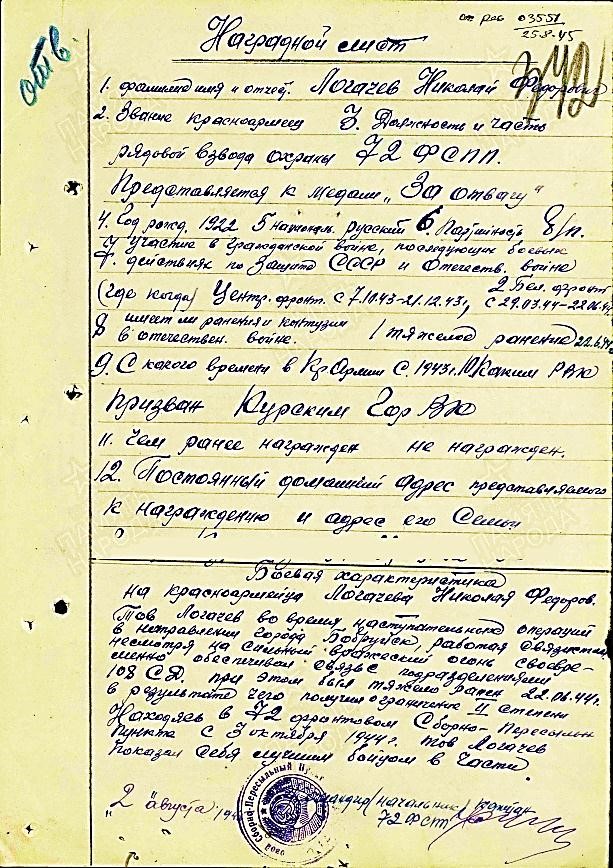 от рав 03551
25.8.45
отв.
Наградной лист
1. фамилия имя и отчеб. Логачев Николай Федорович
2. Звание красноармеец 3. Должность и часть
рядовой взвода охраны 72 ФСПП.
Представляется к медали „За отвагу"
4. Год рожд. 1922 5 национальн. русский 6. Партийность б/п.
7 участие в гражданской войне, последующих боевых
действиях по защите СССР и Отечеств. войне
2 Бел. фронт
(где когда) Центр. фронт. с 7.10.43-21.12.43г, с 29.03.44-22.06.44
8 имеет ли ранения и контузии
в отечествен. войне. 1 тяжелое ранение 22.6.44
9. С какого времени в Кр Армии С. 1943г. 10/Каким РВК
призван Курским Гор ВК
11. Чем ранее награжден не награжден.
12. Постоянный домашний адрес представляемого
к награждению и адрес его семьи
Боевая характеристика
на красноармейца Логачева Николая Федоров.
Тов Логачев во время наступательной операций
в направлении города Бобруйск, работая связистом
несмотря на сильный вражеский огонь своевре-
менно обеспечивал связь с подразделениями
108 С.Д. при этом был тяжело ранен 22.06.44г.
в результате чего получил ограничение II степени
Находясь в 72 фронтовом Сборно-Пересыльн
Пункте с 3 октября 1944г. тов Логачев
показал себя лучшим бойцом в части
"2" августа 194
Командир/начальник/ капитан
72 ФСПП
Сборно-Пересыльный Пункт